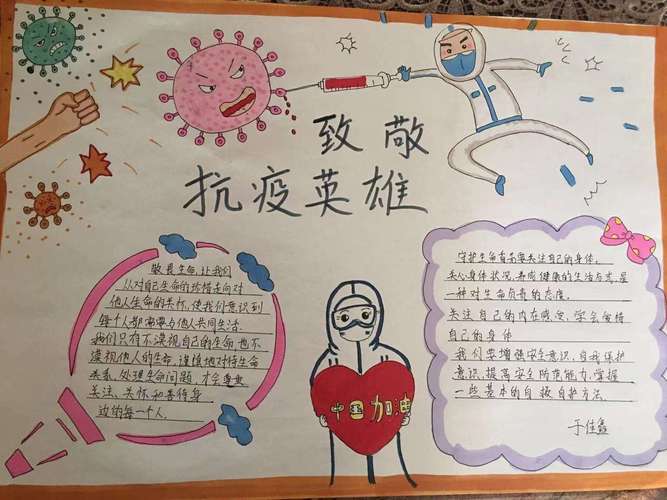 致敬
抗疫英雄
敬畏生命,让我们
从对自己生命的珍惜走向对
他人生命的关怀,使我们意识到
每个人都需要与他人共同生活.
我们只有不漠视自己的生命,也不
漠视他人的生命,谨慎地对待生命
关系、处理生命问题,才会
关注、关怀和善待身
边的每一个人.
守护生命首先要关注自己的身体,
关心身体状况,养成健康的生活方式,是
一种对生命负责的态度.
关注自己的内在感受,学会爱护
自己的身体
我们要增强安全意识、自我保护
意识,提高安全防范能力,掌握
一些基本的自救自护方法.
中国加油
于佳鑫